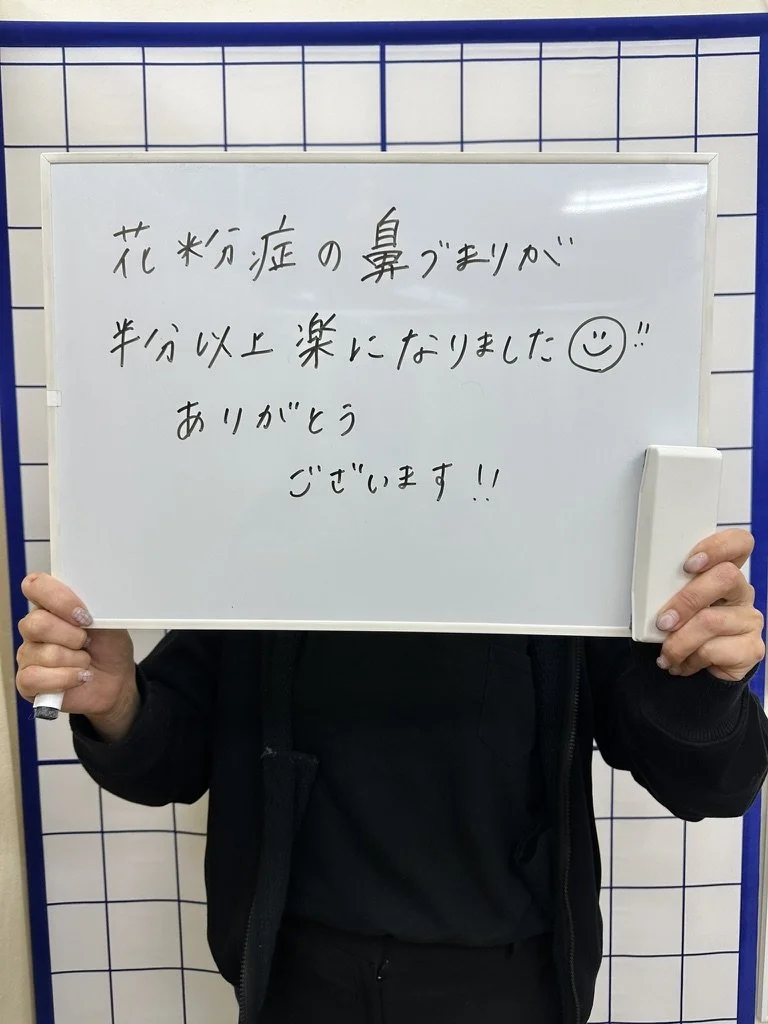 花粉症の鼻づまりが
半分以上楽になりました☺!!
ありがとう
ございます!!